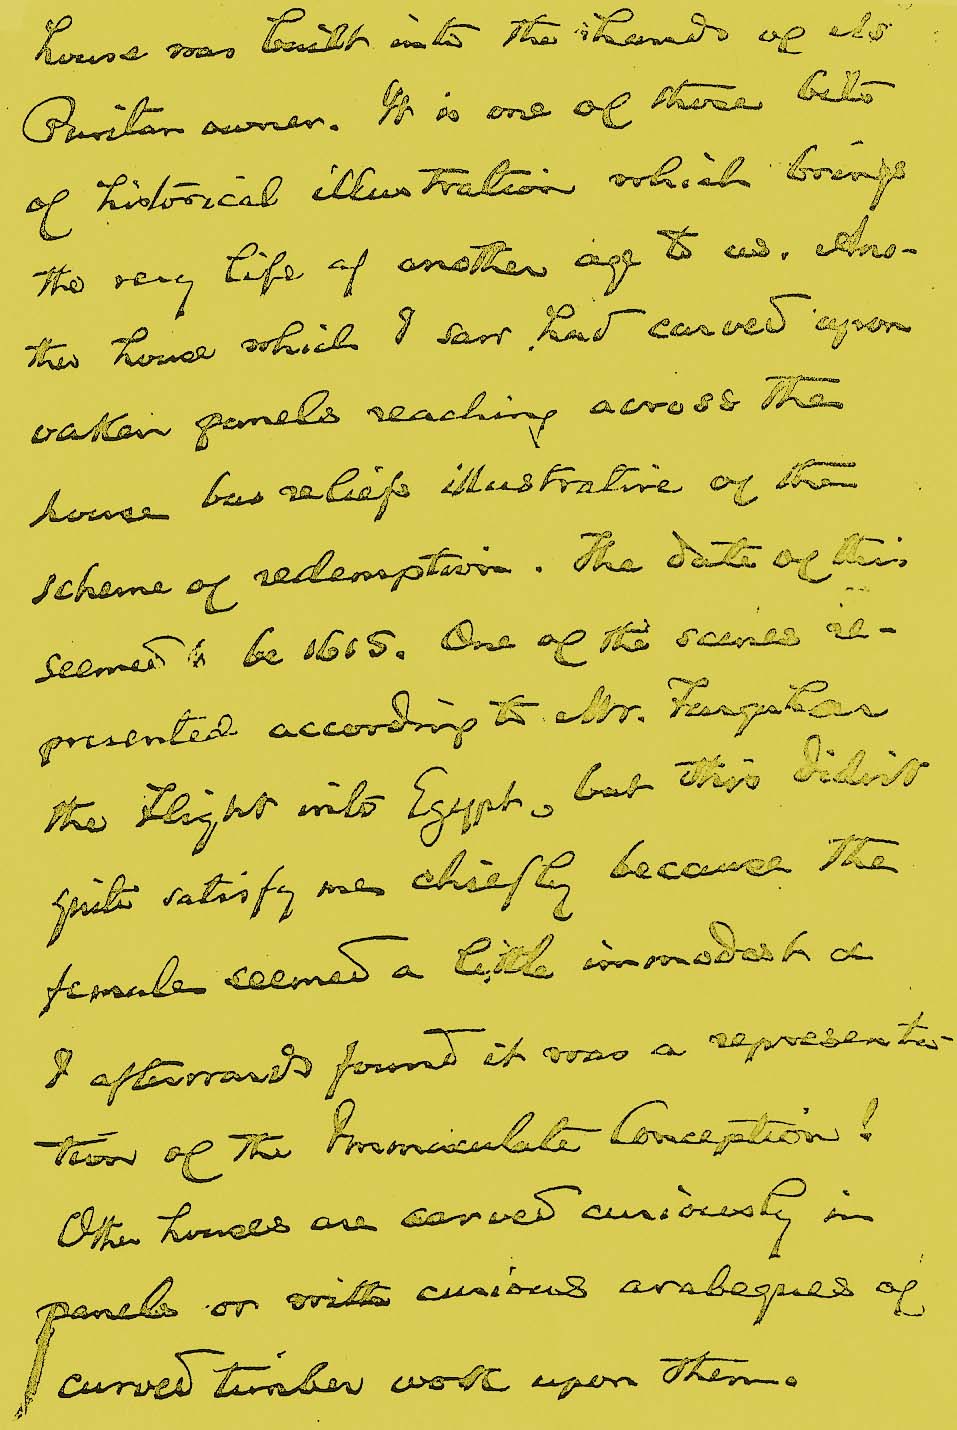 house was built into the hands of its
Puritan owner. It is one of those bits
of historical illustration which brings
the very life of another age to us. Ano-
ther house which I saw had carved upon
oaken panels reaching across the
house bas reliefs illustrative of the
scheme of redemption. The date of this
seemed to be 1615. One of the scenes re-
presented according to Mr. Farquhar
the Flight into Egypt, but this didn't
quite satisfy me chiefly because the
female seemed a little immodest &
I afterwards found it was a representa-
tion of the Immaculate Conception!
Other houses are carved curiously in
panels or with curious arabeques of
curved timber work upon them.